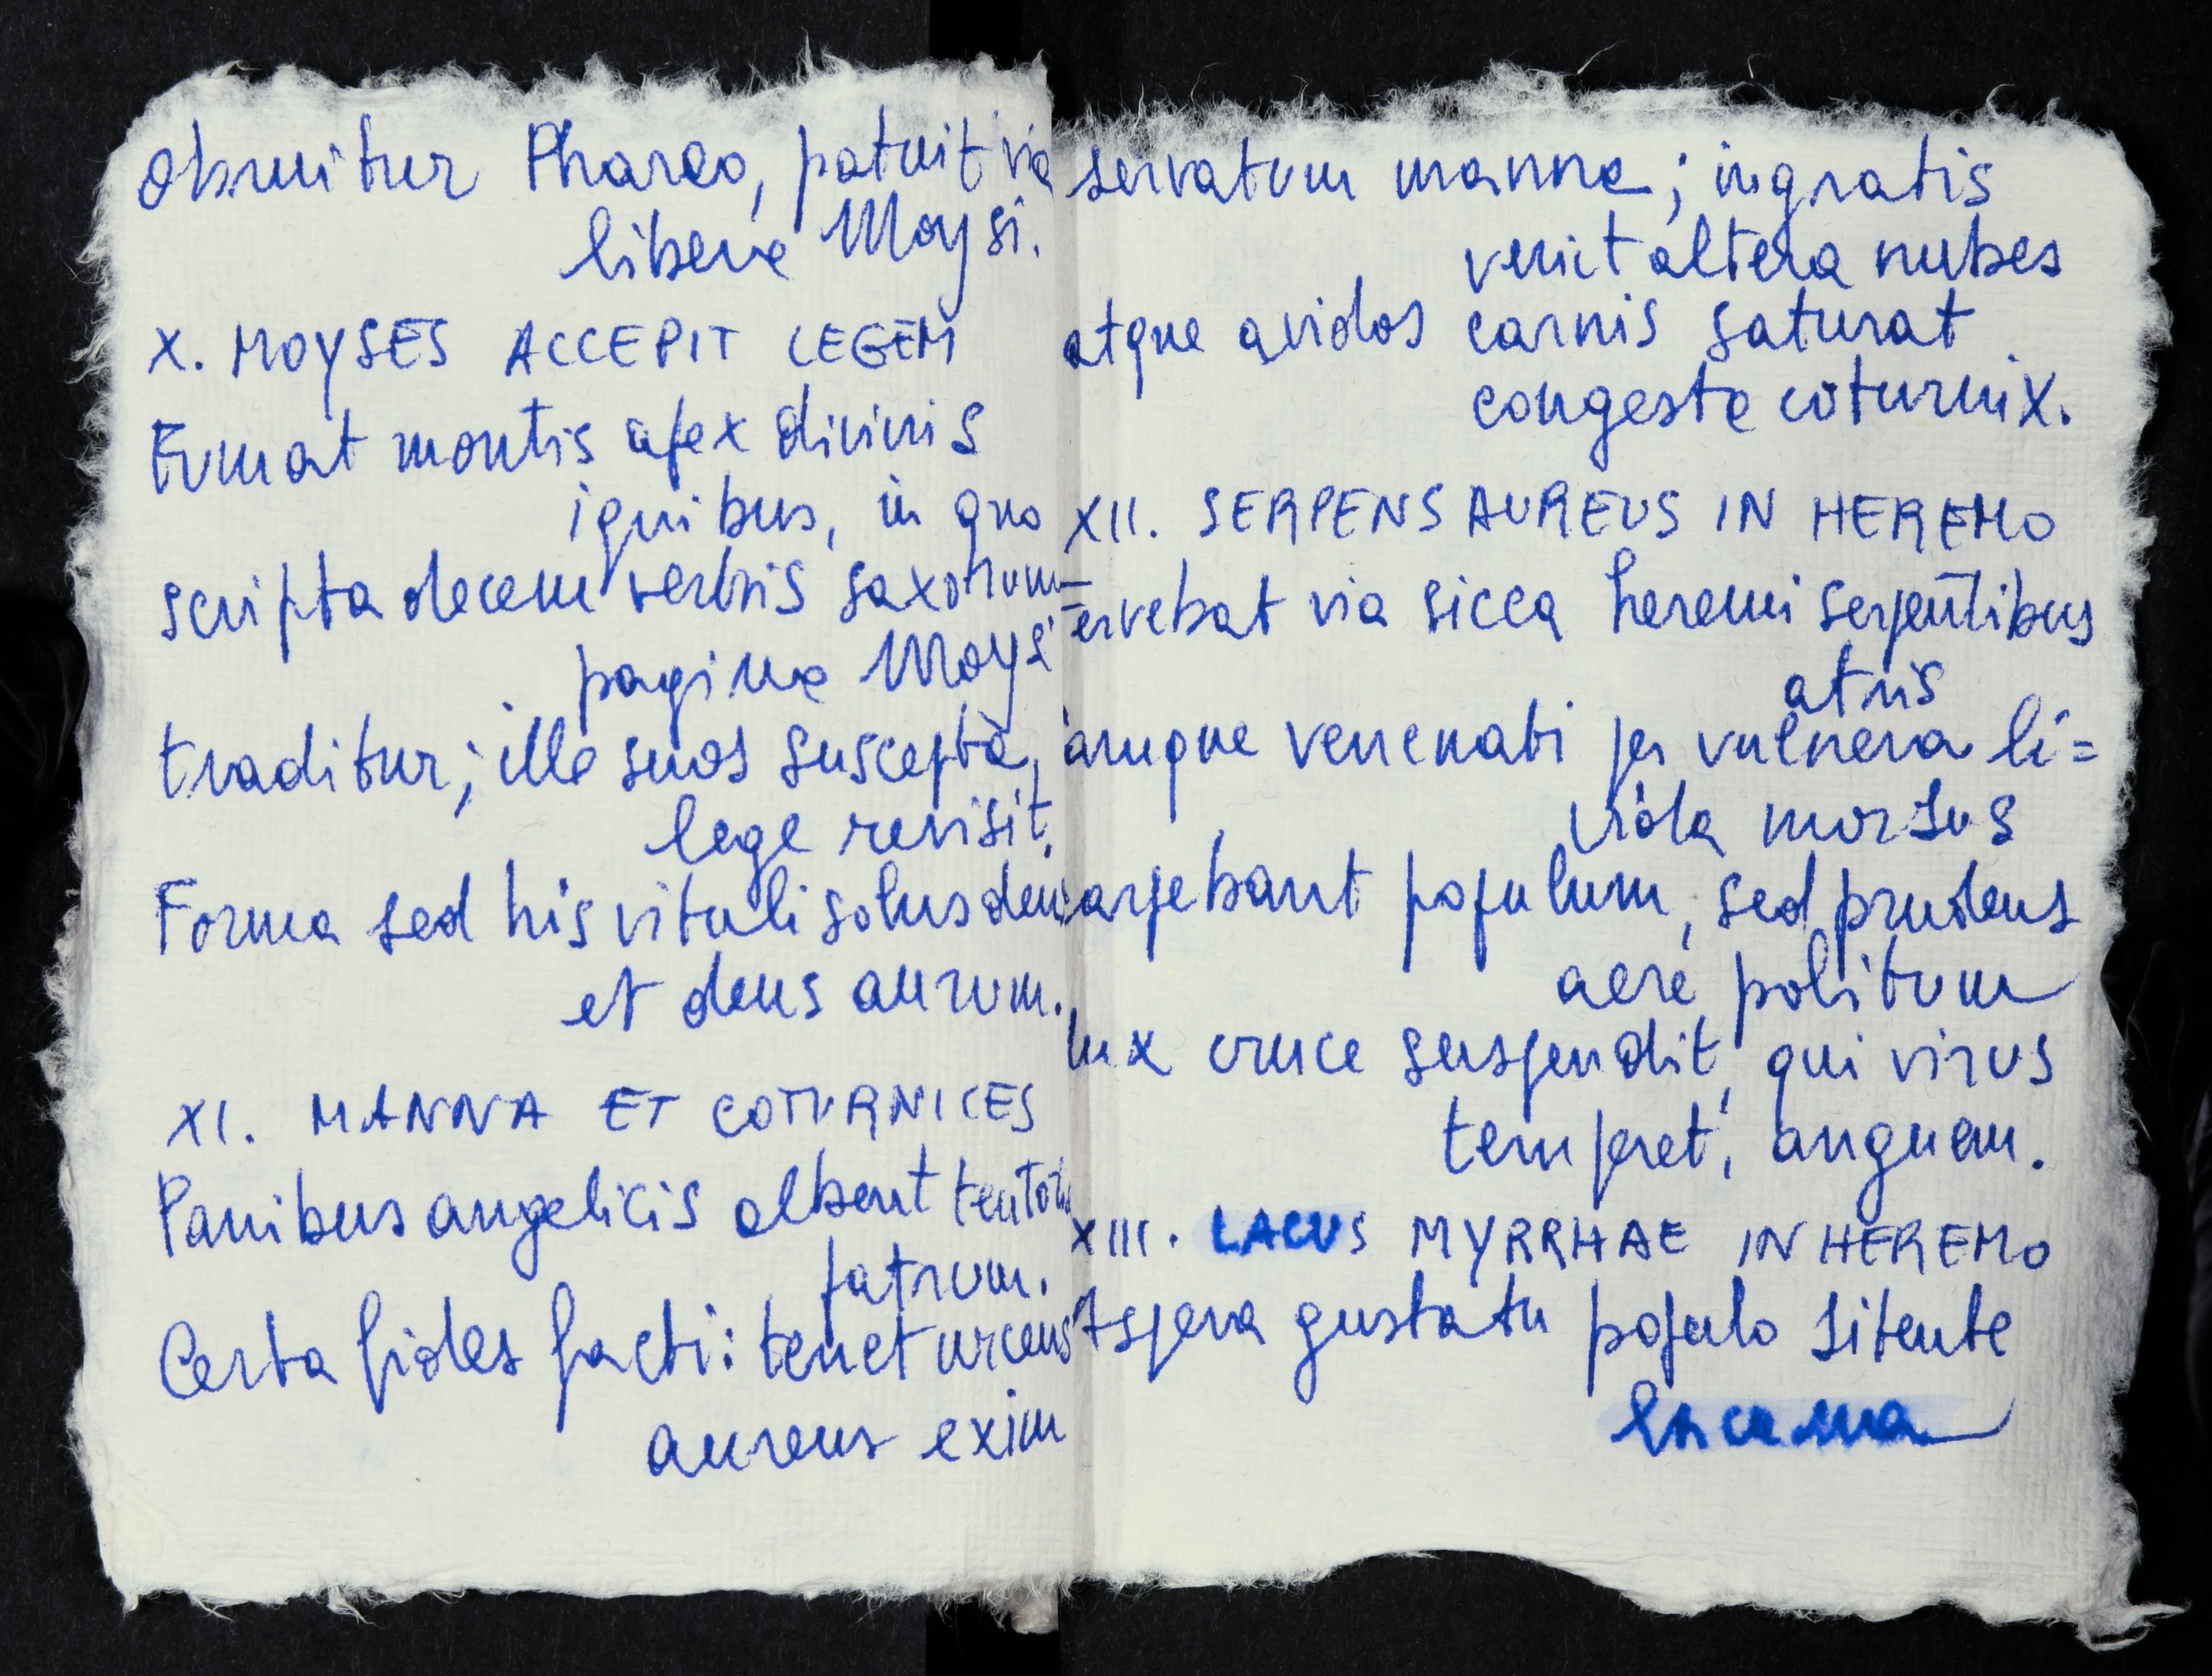 Obruitur Phareo, patuit via
libera Moysi.
X. MOYSES ACCEPIT LEGEM
Fumat montis apex divinis
ignibus, in quo
scripta decem verbis saxorum
pagina Moysi
traditur; ille suos suscepta
lege revisit.
Forma sed his vituli solus deus
et deus aurum.
XI. MANNA ET COTURNICES
Panibus angelicis albent tentori
patrum.
Certa fides facti: tenet urceus
aureus exim
servatum manna; ingratis
venit altera nubes
atque avidos carnis saturat
congesta coturnix.
XII. SERPENS AUREUS IN HEREMO
ervebat via sicca heremi serpentibus
atris
amque venenati per vulnera li=
vida morsus
arpebant populum, sed prudens
aere politum
dux cruce suspendit, qui virus
temperet, anguem.
XIII. LACUS MYRRHAE IN HEREMO
Aspera gustatu populo sitente
lacuna